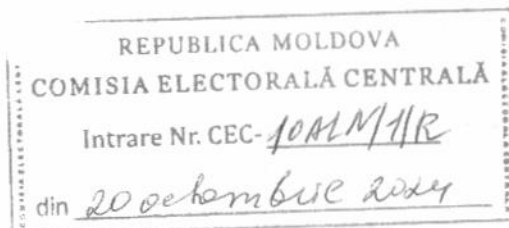 REPUBLICA MOLDOVA
COMISIA ELECTORALĂ CENTRALĂ
Intrare Nr. CEC-10ALN/1/R
din 20 octombrie 2024